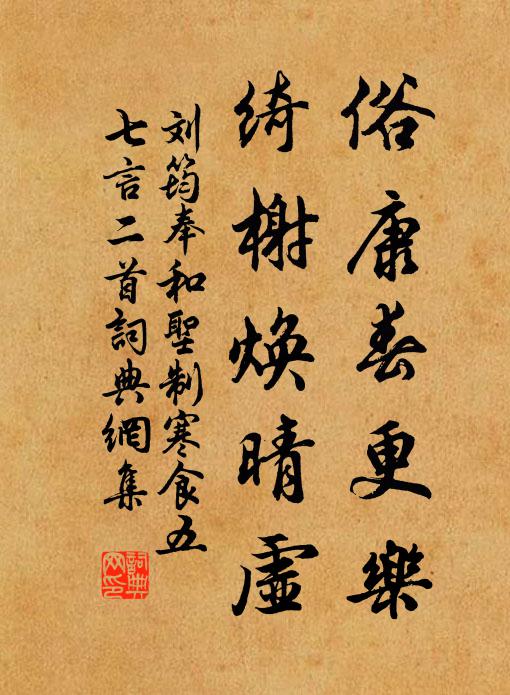 俗康春更樂
綺榭煥晴虛
刘筠奉和聖制寒食五
七言二首詞典網集
詞典网印